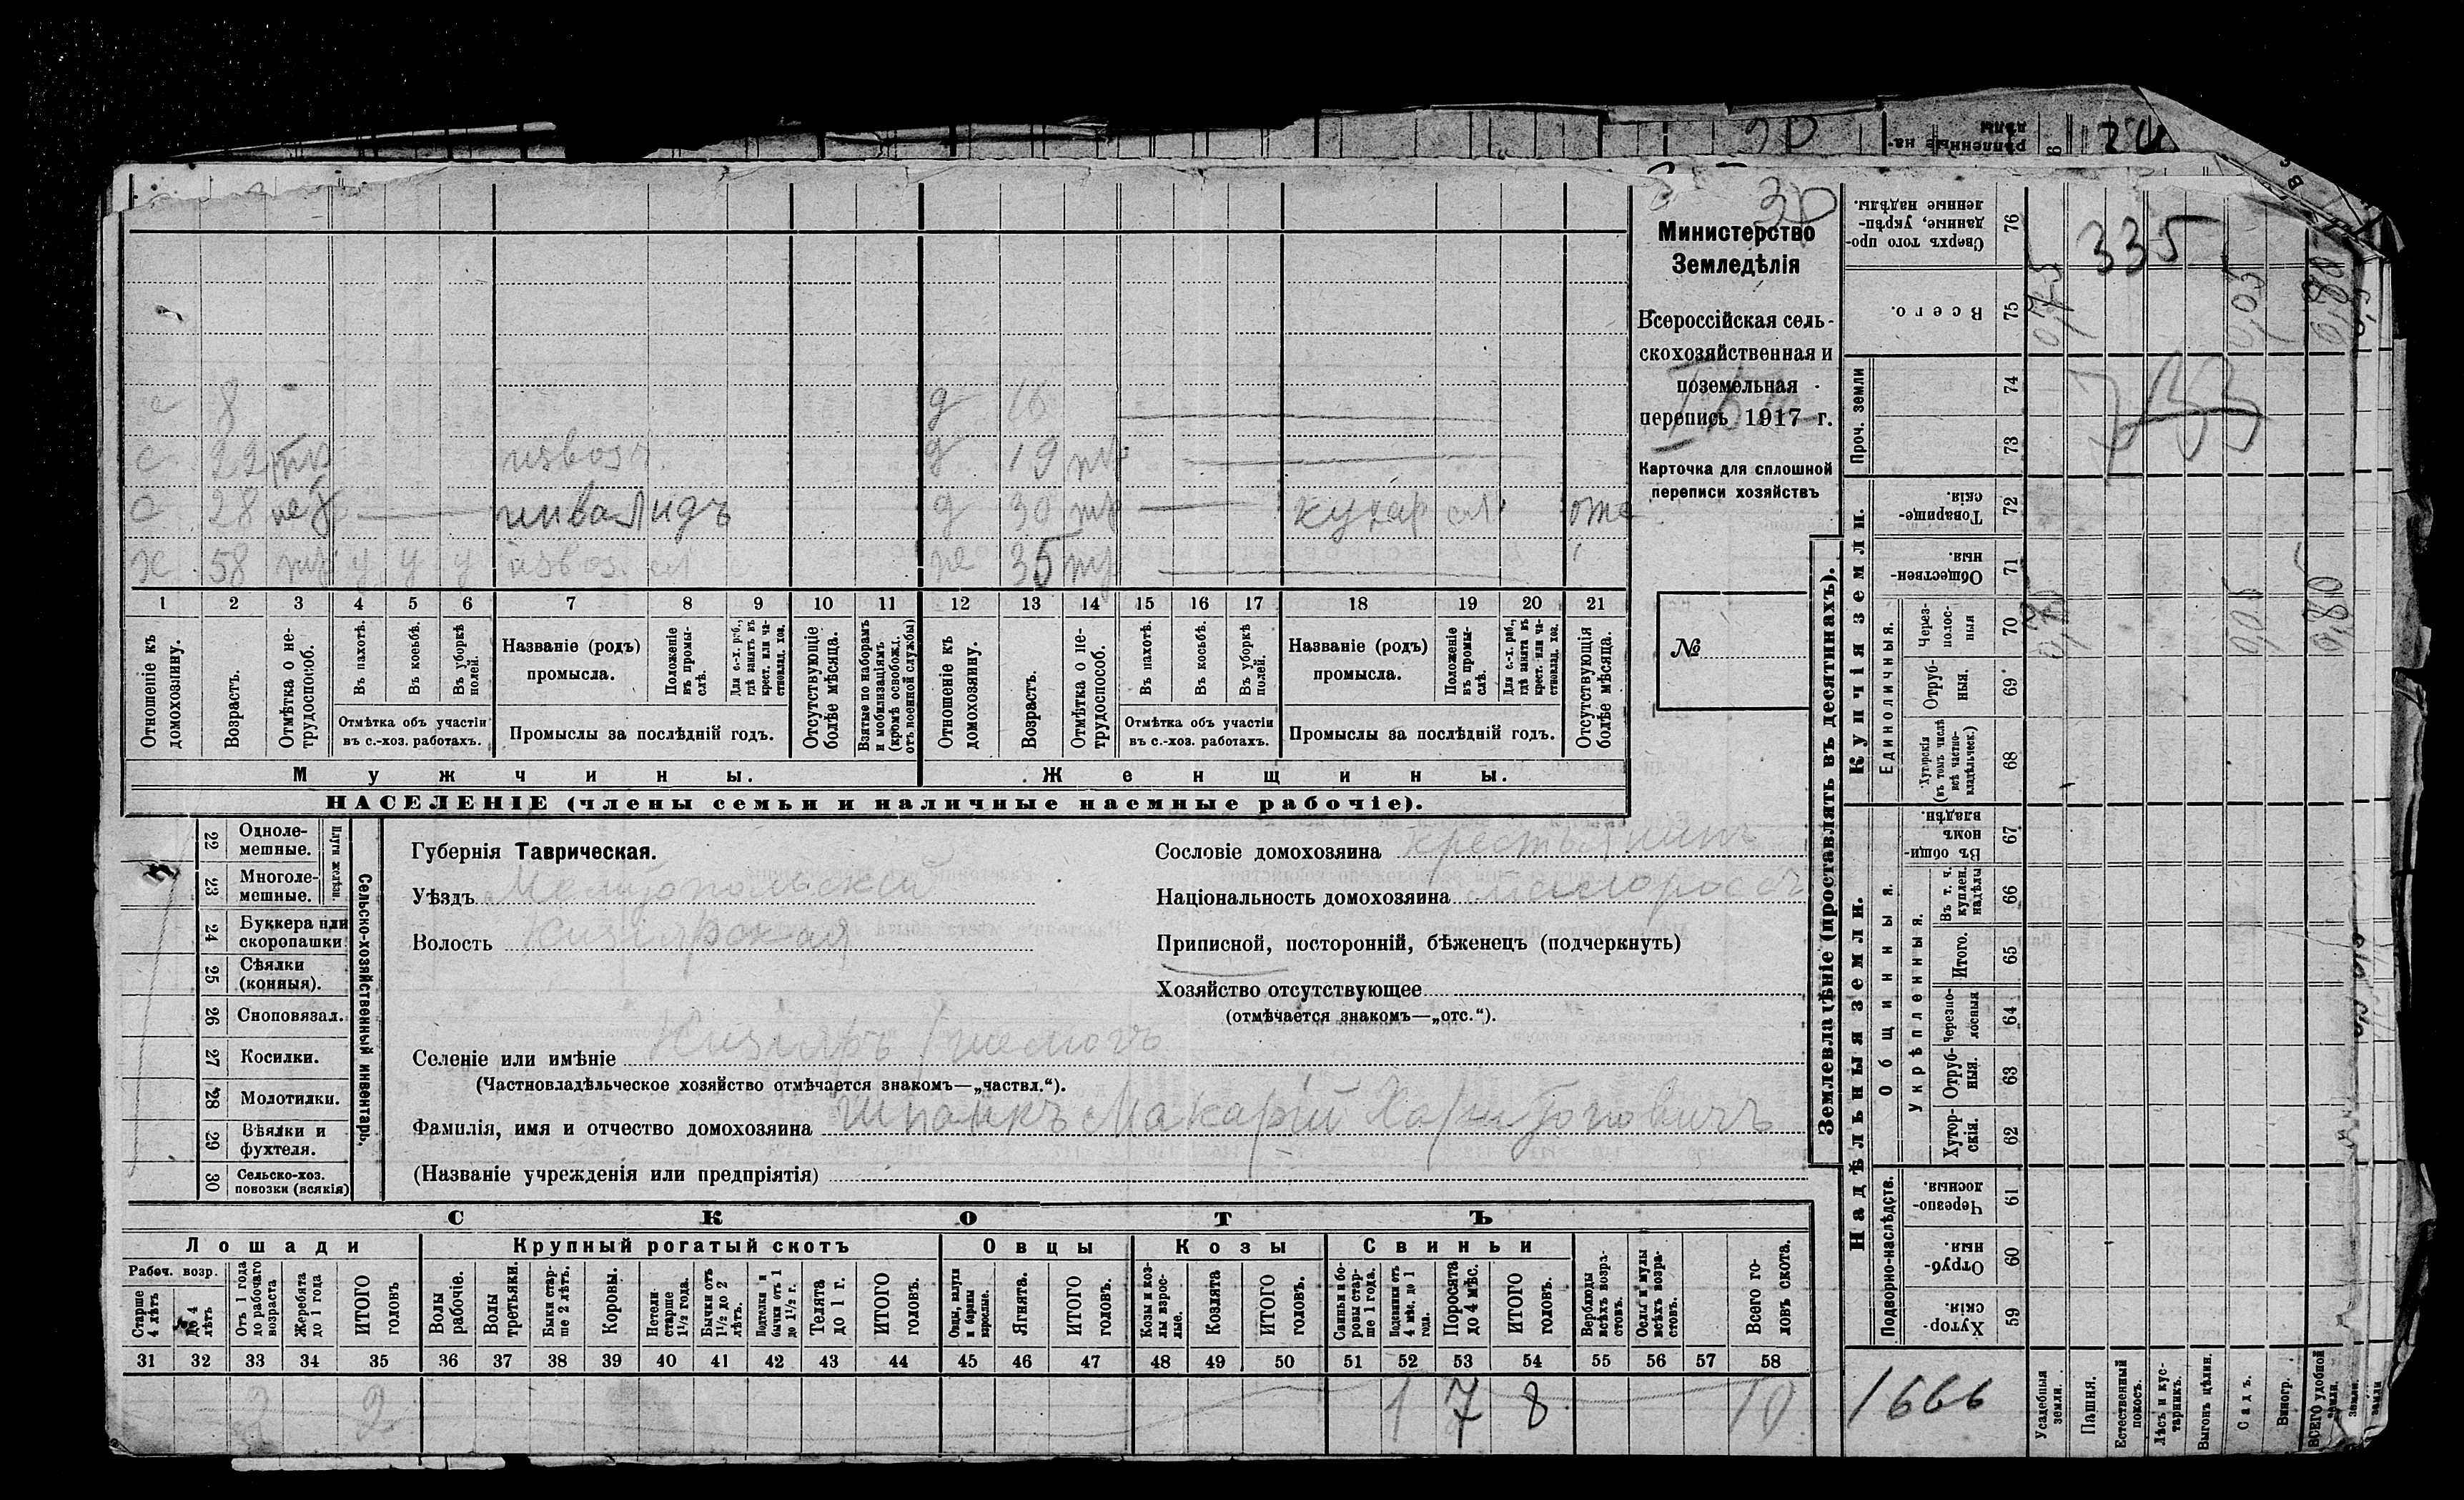 30
Министерство
Земледѣлія
Всероссійская сель-
скохозяйственная и
поземельная
перепись 1917 г.
Карточка для сплошной
переписи хозяйствъ
№
с 8
д 16
с 22 извоз.
д 19
с 28 инвалидъ
д 30 кухар отс
х 58 у у у извоз.
же 35
1 2 3 4 5 6 7 8 9 10 11 12 13 14 15 16 17 18 19 20 21
Отношеніе къ домохозяину.
Возрастъ.
Отмѣтка о не-трудоспособ.
Въ пахотѣ.
Въ косьбѣ.
Въ уборкѣ полей.
Отмѣтка объ участіи въ с.-хоз. работахъ.
Названіе (родъ) промысла.
Положеніе въ промы-слѣ.
Для с.-х. раб., гдѣ занятъ въ крест. или ча-стновлад. хоз.
Промыслы за послѣдній годъ.
Отсутствующіе болѣе мѣсяца.
Взятые по наборамъ и мобилизаціямъ (кромѣ освобожд. отъ военной службы)
Отношеніе къ домохозяину.
Возрастъ.
Отмѣтка о не-трудоспособ.
Въ пахотѣ.
Въ косьбѣ.
Въ уборкѣ полей.
Отмѣтка объ участіи въ с.-хоз. работахъ.
Названіе (родъ) промысла.
Положеніе въ промы-слѣ.
Для с.-х. раб., гдѣ занята въ крест. или ча-стновлад. хоз.
Промыслы за послѣдній годъ.
Отсутствующія болѣе мѣсяца.
Мужчины.
Женщины.
НАСЕЛЕНІЕ (члены семьи и наличные наемные рабочіе).
22 Одноле-мешные.
23 Многоле-мешные.
Плуги желѣзн.
24 Буккера или скоропашки
25 Сѣялки (конныя).
26 Сноповязал.
27 Косилки.
28 Молотилки.
29 Вѣялки и фухтеля.
30 Сельско-хоз. повозки (всякія)
Сельско-хозяйственный инвентарь.
Губернія Таврическая.
Уѣздъ Мелитопольскій
Волость Кизіярская
Сословіе домохозяина крестьянинъ
Національность домохозяина малороссъ
Приписной, посторонній, бѣженецъ (подчеркнуть)
Хозяйство отсутствующее
(отмѣчается знакомъ—„отс.“).
Селеніе или имѣніе Кизіяръ
(Частновладѣльческое хозяйство отмѣчается знакомъ—„частвл.“).
Фамилія, имя и отчество домохозяина Шпанкъ Макарій Харитоновичъ
(Названіе учрежденія или предпріятія)
СКОТЪ
Лошади
Крупный рогатый скотъ
Овцы
Козы
Свиньи
Рабоч. возр.
Старше 4 лѣтъ
До 4 лѣтъ
Отъ 1 года до рабочаго возраста
Жеребята до 1 года
ИТОГО головъ
Волы рабочіе.
Волы третьяки.
Быки стар-ше 2 лѣтъ.
Коровы.
Нетели старше 1½ года.
Бычки отъ 1½ до 2 лѣтъ.
Подтелки и бычки отъ 1 до 1½ г.
Телята до 1 г.
ИТОГО головъ.
Овцы, валухи и бараны взрослые.
Ягнята.
ИТОГО головъ.
Козы и коз-лы взрос-лые.
Козлята
ИТОГО головъ.
Свиньи и бо-ровы стар-ше 1 года.
Подсвинки отъ 4 мѣс. до 1 года.
Поросята до 4 мѣс.
ИТОГО головъ.
Верблюды всѣхъ возра-стовъ.
Ослы и мулы всѣхъ возра-стовъ.
Всего го-ловъ скота.
31 32 33 34 35 36 37 38 39 40 41 42 43 44 45 46 47 48 49 50 51 52 53 54 55 56 57 58
2 2 1 7 8 10
Землевладѣніе (проставлять въ десятинахъ).
Купчія земли.
Надѣльныя земли.
Сверхъ того про-данные, укрѣп-ленные надѣлы. 76
335
Всего. 75
0,75 0,05 0,80
Проч. земли
74
73
Товарище-скія. 72
Обществен-ныя. 71
Единоличныя.
Через-полос-ныя 70
0,75 0,05 0,80
Отруб-ныя. 69
Хуторскія (въ томъ числѣ всѣ частно-владѣльческ.) 68
Въ общи-номъ владѣн. 67
Общинныя.
Укрѣпленныя.
Въ т. ч. куплен. надѣлы 66
Итого. 65
Черезпо-лосныя 64
Отруб-ныя. 63
Хутор-скія. 62
Подворно-наслѣдств.
Черезпо-лосныя. 61
Отруб-ныя. 60
Хутор-скія. 59
1666
Усадебныя земли.
Пашня.
Естественный покосъ.
Лѣсъ и кус-тарникъ.
Выгонъ цѣлин.
Садъ.
Виногр.
ВСЕГО удобной земли.